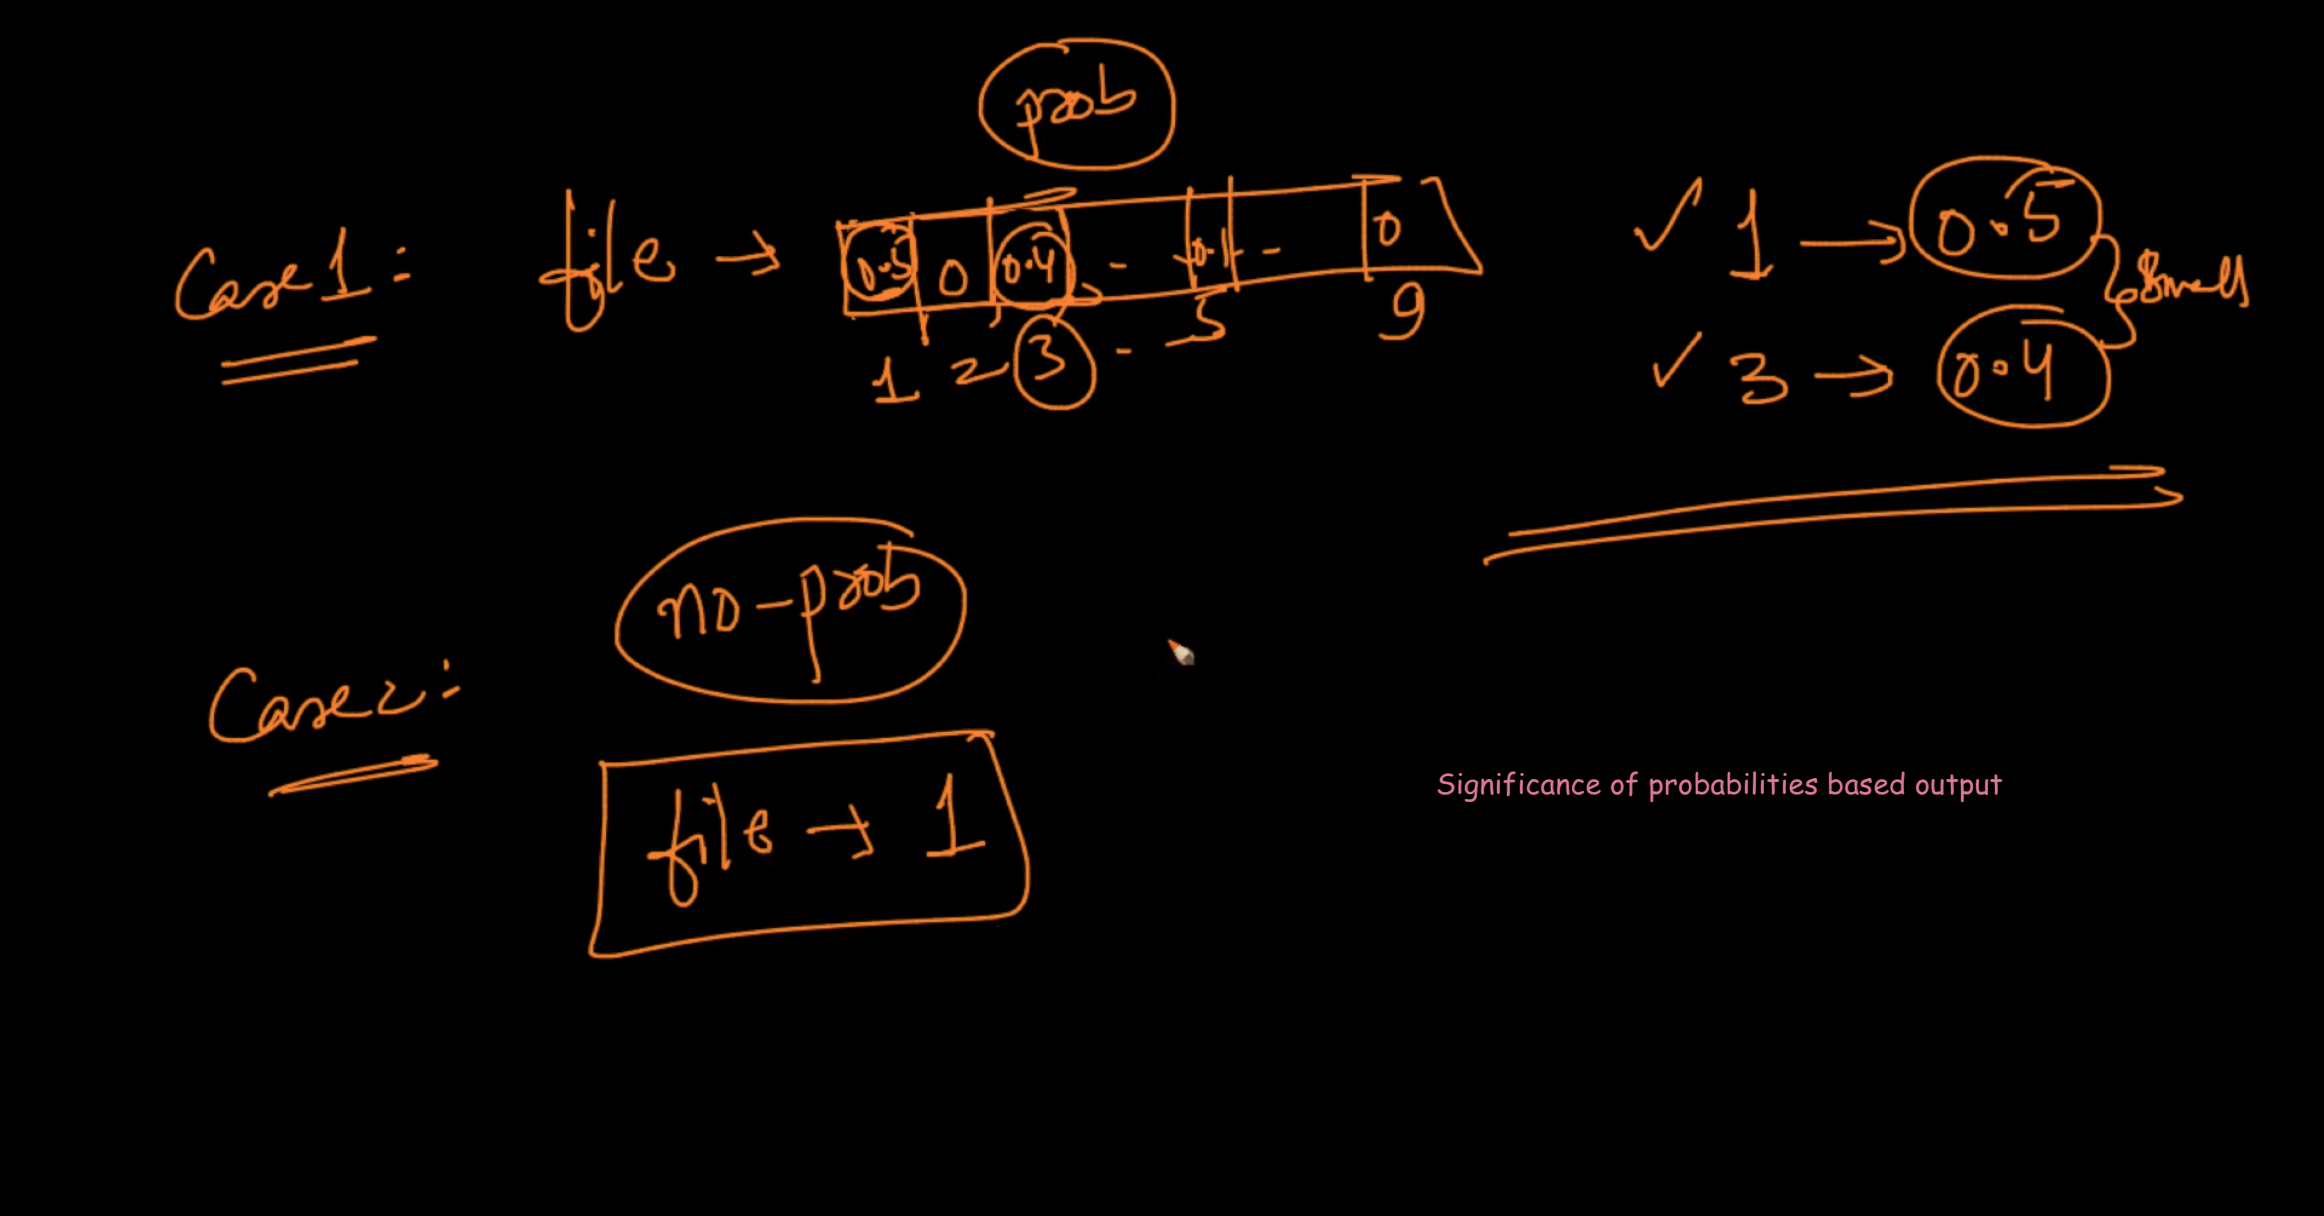 prob
Case 1: file → 0.5 0 0.4 - 0.1 - 0
1 2 3 - 5 9
✓ 1 → 0.5
small
✓ 3 → 0.4
no-prob
Case 2:
file → 1
Significance of probabilities based output